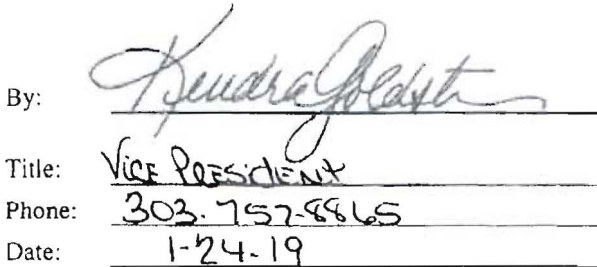 By: Kendra Goldst
Title: VICE PRESIDENT
Phone: 303.757-8865
Date: 1-24-19